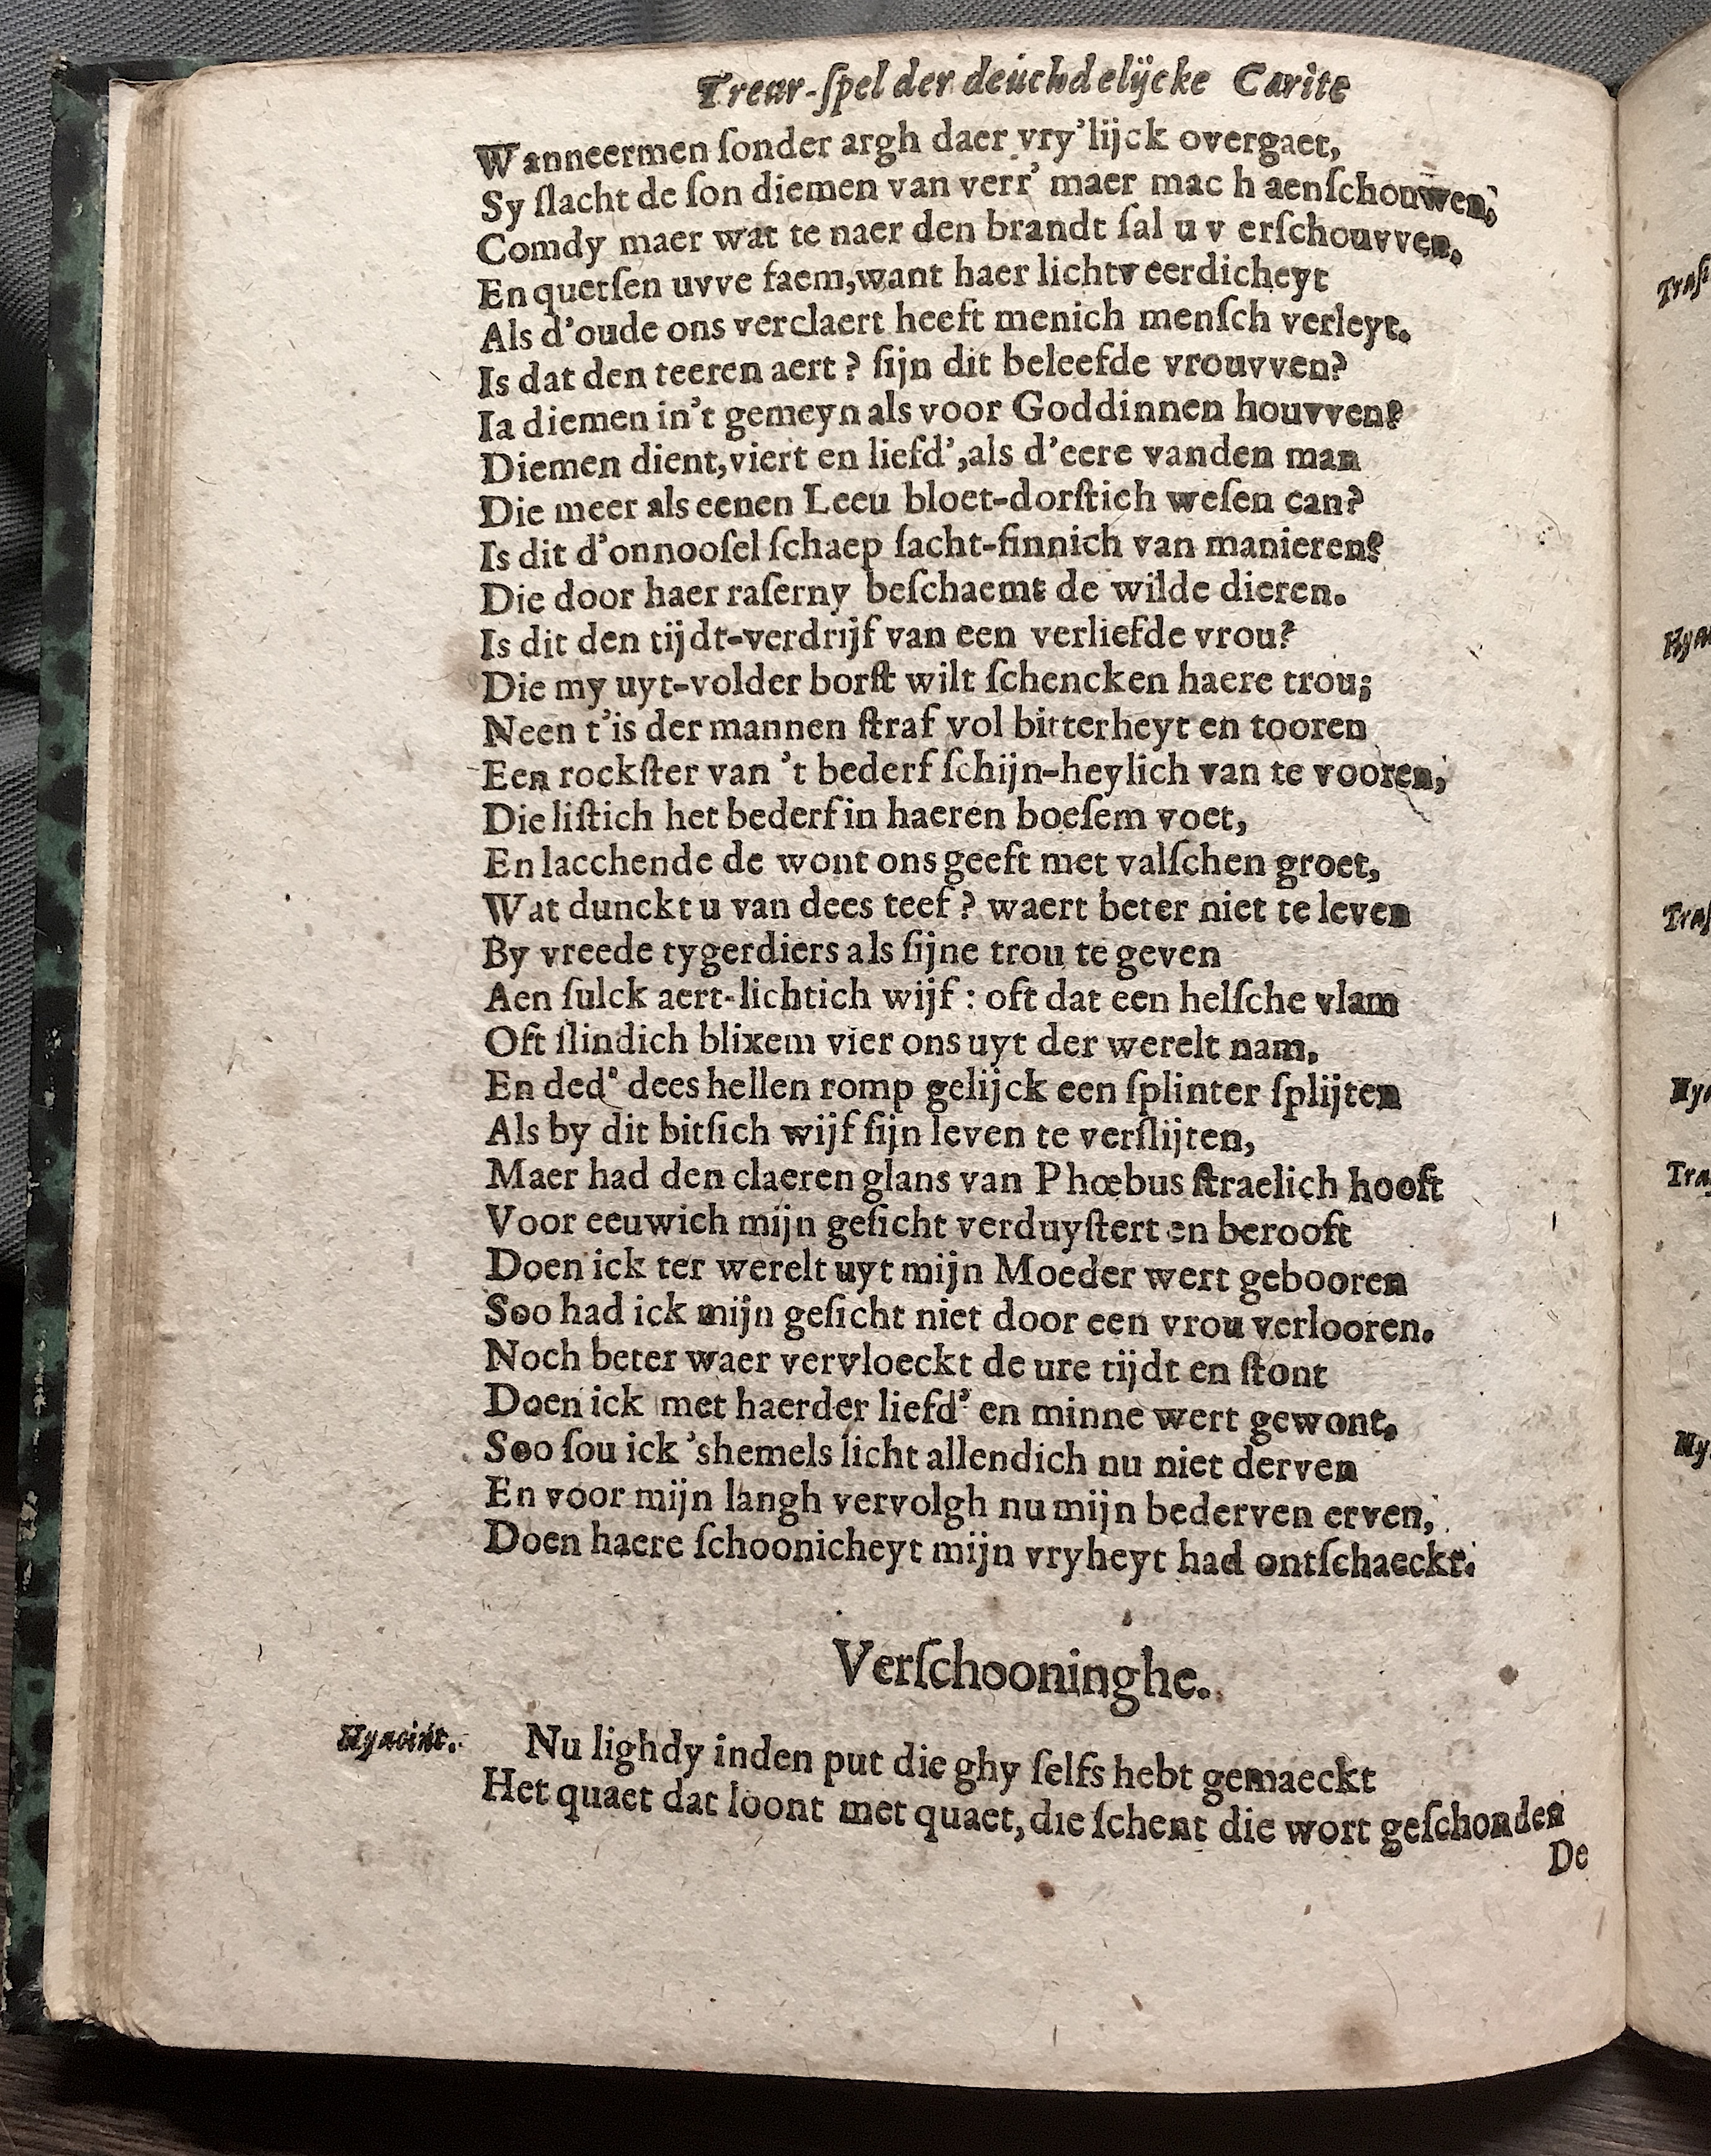 Treur-ſpel der deuchdelijcke Carite
Wanneermen ſonder argh daer vry'lijck overgaet,
Sy ſlacht de ſon diemen van verr' maer mach aenſchouwen,
Comdy maer wat te naer den brandt ſal u verſchouvven.
En quetſen uvve faem,want haer lichtveerdicheyt
Als d'oude ons verclaert heeft menich menſch verleyt.
Is dat den teeren aert? ſijn dit beleefde vrouvven?
Ia diemen in't gemeyn als voor Goddinnen houvven?
Diemen dient,viert en liefd',als d'eere vanden man
Die meer als eenen Leeu bloet-dorſtich weſen can?
Is dit d'onnooſel ſchaep ſacht-ſinnich van manieren?
Die door haer raſerny beſchaemt de wilde dieren.
Is dit den tijdt-verdrijf van een verliefde vrou?
Die my uyt-volder borſt wilt ſchencken haere trou;
Neen t'is der mannen ſtraf vol bitterheyt en tooren
Een rockſter van 't bederf ſchijn-heylich van te vooren,
Die liſtich het bederf in haeren boeſem voet,
En lacchende de wont ons geeft met valſchen groet,
Wat dunckt u van dees teef? waert beter niet te leven
By vreede tygerdiers als ſijne trou te geven
Aen ſulck aert-lichtich wijf: oft dat een helſche vlam
Oft ſlindich blixem vier ons uyt der werelt nam,
En ded' dees hellen romp gelijck een ſplinter ſplijten
Als by dit bitſich wijf ſijn leven te verſlijten,
Maer had den claeren glans van Phœbus ſtraelich hooft
Voor eeuwich mijn geſicht verduyſtert en berooft
Doen ick ter werelt uyt mijn Moeder wert gebooren
Soo had ick mijn geſicht niet door een vrou verlooren.
Noch beter waer vervloeckt de ure tijdt en ſtont
Doen ick met haerder liefd' en minne wert gewont,
Soo ſou ick 'shemels licht allendich nu niet derven
En voor mijn langh vervolgh nu mijn bederven erven,
Doen haere ſchoonicheyt mijn vryheyt had ontſchaeckt.
Verſchooninghe.
Hyacint. Nu lighdy inden put die ghy ſelfs hebt gemaeckt
Het quaet dat loont met quaet, die ſchent die wort geſchonden
De